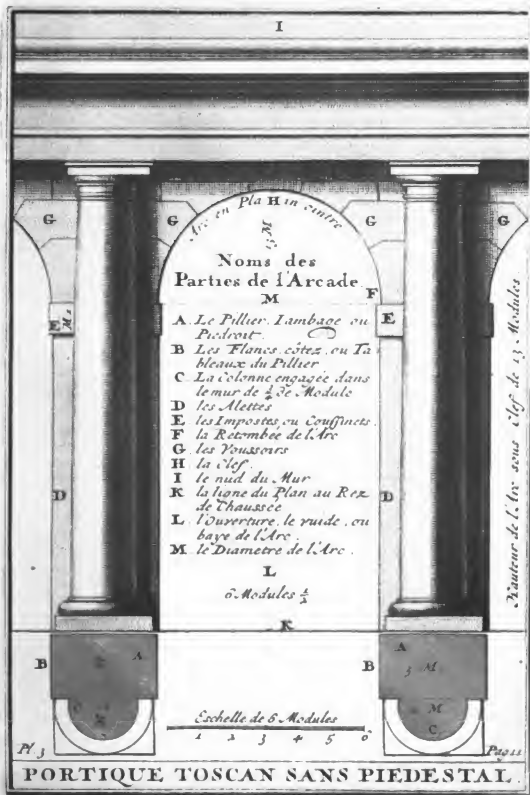 I
G G G G
Arc en Pla H in cintre
M
Noms des
Parties de l'Arcade
M
F
E E
A. Le Pillier, Iambage ou
Piedroit.
B Les Flancs, côtez, ou Ta
bleaux du Pillier
C La Colonne engagée dans
le mur de ¼ de Module
D les Alettes
E les Impostes, ou Coussinets.
F la Retombée de l'Arc
G les Voussoirs
H la Clef.
I le nud du Mur
K la ligne du Plan au Rez
de Chaussée
L l'Ouverture, le vuide, ou
baye de l'Arc.
M le Diametre de l'Arc.
Hauteur de l'Arc sous Clef de 13 Modules
D D
L
6 Modules ½
K
B A B A
3 M
M
C
Eschelle de 6 Modules
1 2 3 4 5 6
Pl. 3
Pag 11
PORTIQUE TOSCAN SANS PIEDESTAL.